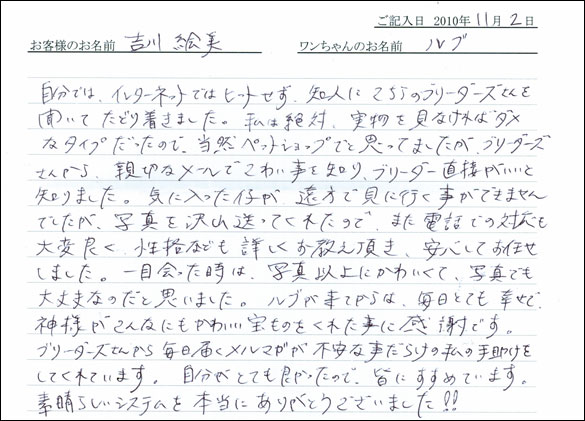 ご記入日 2010年 11月 2日
お客様のお名前 吉川 絵美 ワンちゃんのお名前 ルブ
自分では、インターネットではヒットせず、知人にこちらのブリーダーズさんを
聞いてたどり着きました。私は絶対、実物を見なければダメ
なタイプだったので、当然ペットショップでと思ってましたが、ブリーダーズ
さんから、親切なメールでこわい事を知り、ブリーダー直接がいいと
知りました。気に入った仔が、遠方で見に行く事ができません
でしたが、写真を沢山送ってくれたので、また電話での対応も
大変良く、性格なども詳しくお教え頂き、安心してお任せ
しました。一目会った時は、写真以上にかわいくて、写真でも
大丈夫なのだと思いました。ルブが来てからは、毎日とても幸せで、
神様がこんなにもかわいい宝ものをくれた事に感謝です。
ブリーダーズさんから毎日届くメルマガが不安な事だらけの私の手助けを
してくれています。自分がとても良かったので、皆にすすめています。
素晴らしいシステムを本当にありがとうございました!!